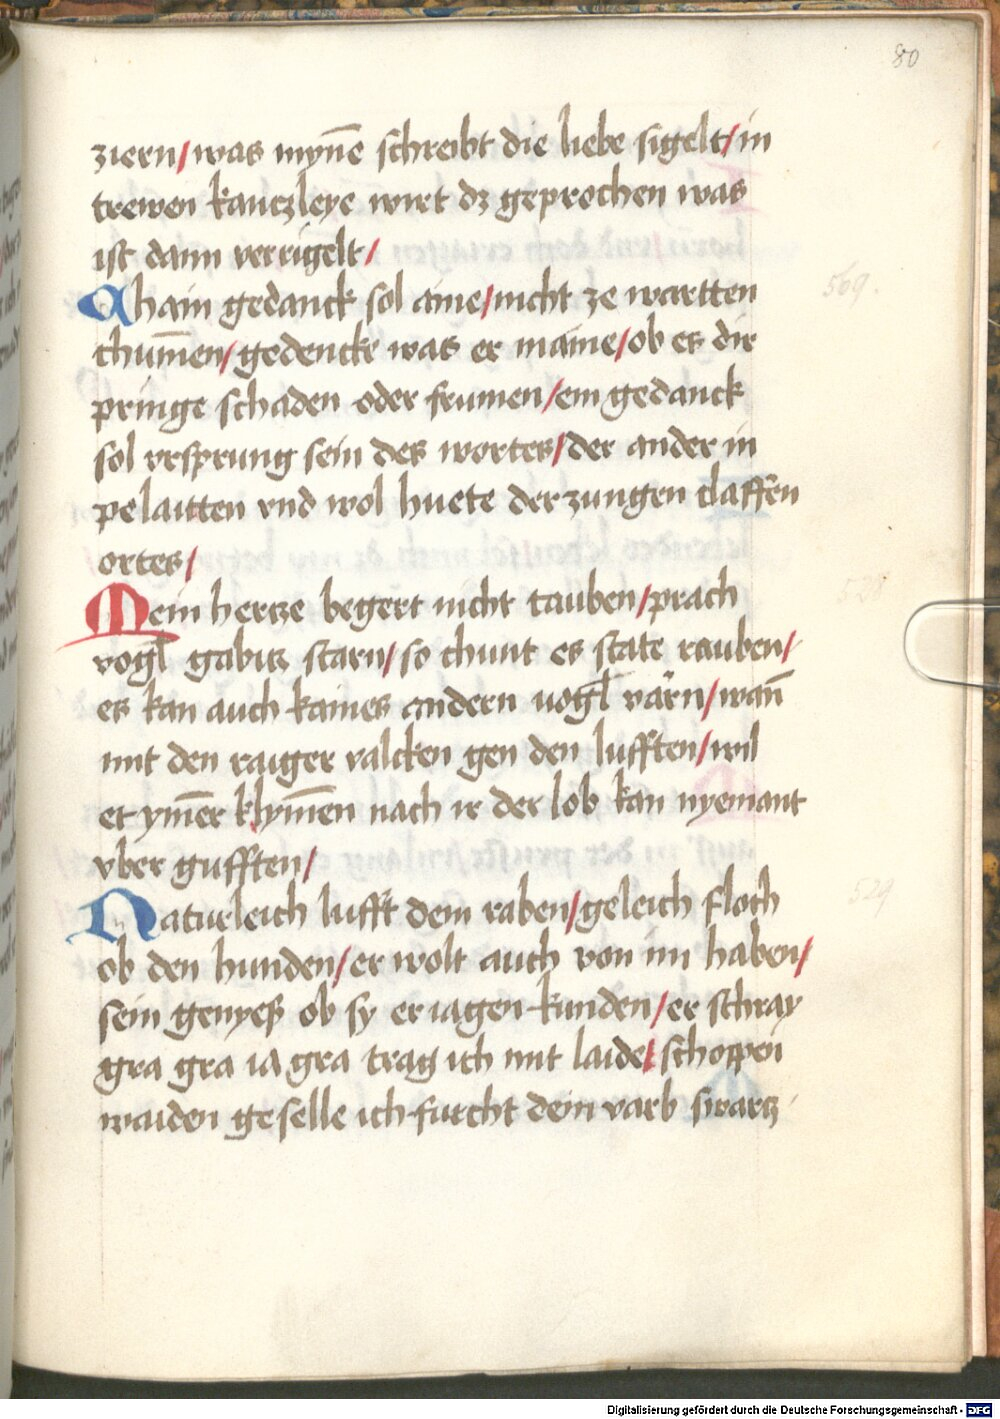 80
ziern/was mynē schreibt die liebe sigelt/in
trewen kantzleye wirt dz geprochen was
ist dann verrigelt/
Chain gedanck sol aine/nicht ze wartten
569.
chum̄en/gedenckt was er maine/ob es dir
pringe schaden oder frumen/ein gedanck
sol vrsprung sein des wortes/der ander in
pelaitten vnd wol huete der zungen claffen
ortes/
Mein hertze begert nicht tauben/prach
528
vogl gabitz starn/so chunt es state rauben/
es kan auch kaines andern uogl varn/wan̄
mit den raiger valcken gen den lufften/wil
er ym̄er klym̄en nach ir der lob kan nyemant
vber gufften/
Naturleich lufft dem raben/geleich floch
529
ob den hunden/er wolt auch von im haben/
sein genyeß ob sy er iagen kunden/er schray
gra gra ia gra trag ich mit laide/schoppen
waiden geselle ich furcht dein varb swartz
Digitalisierung gefördert durch die Deutsche Forschungsgemeinschaft - DFG